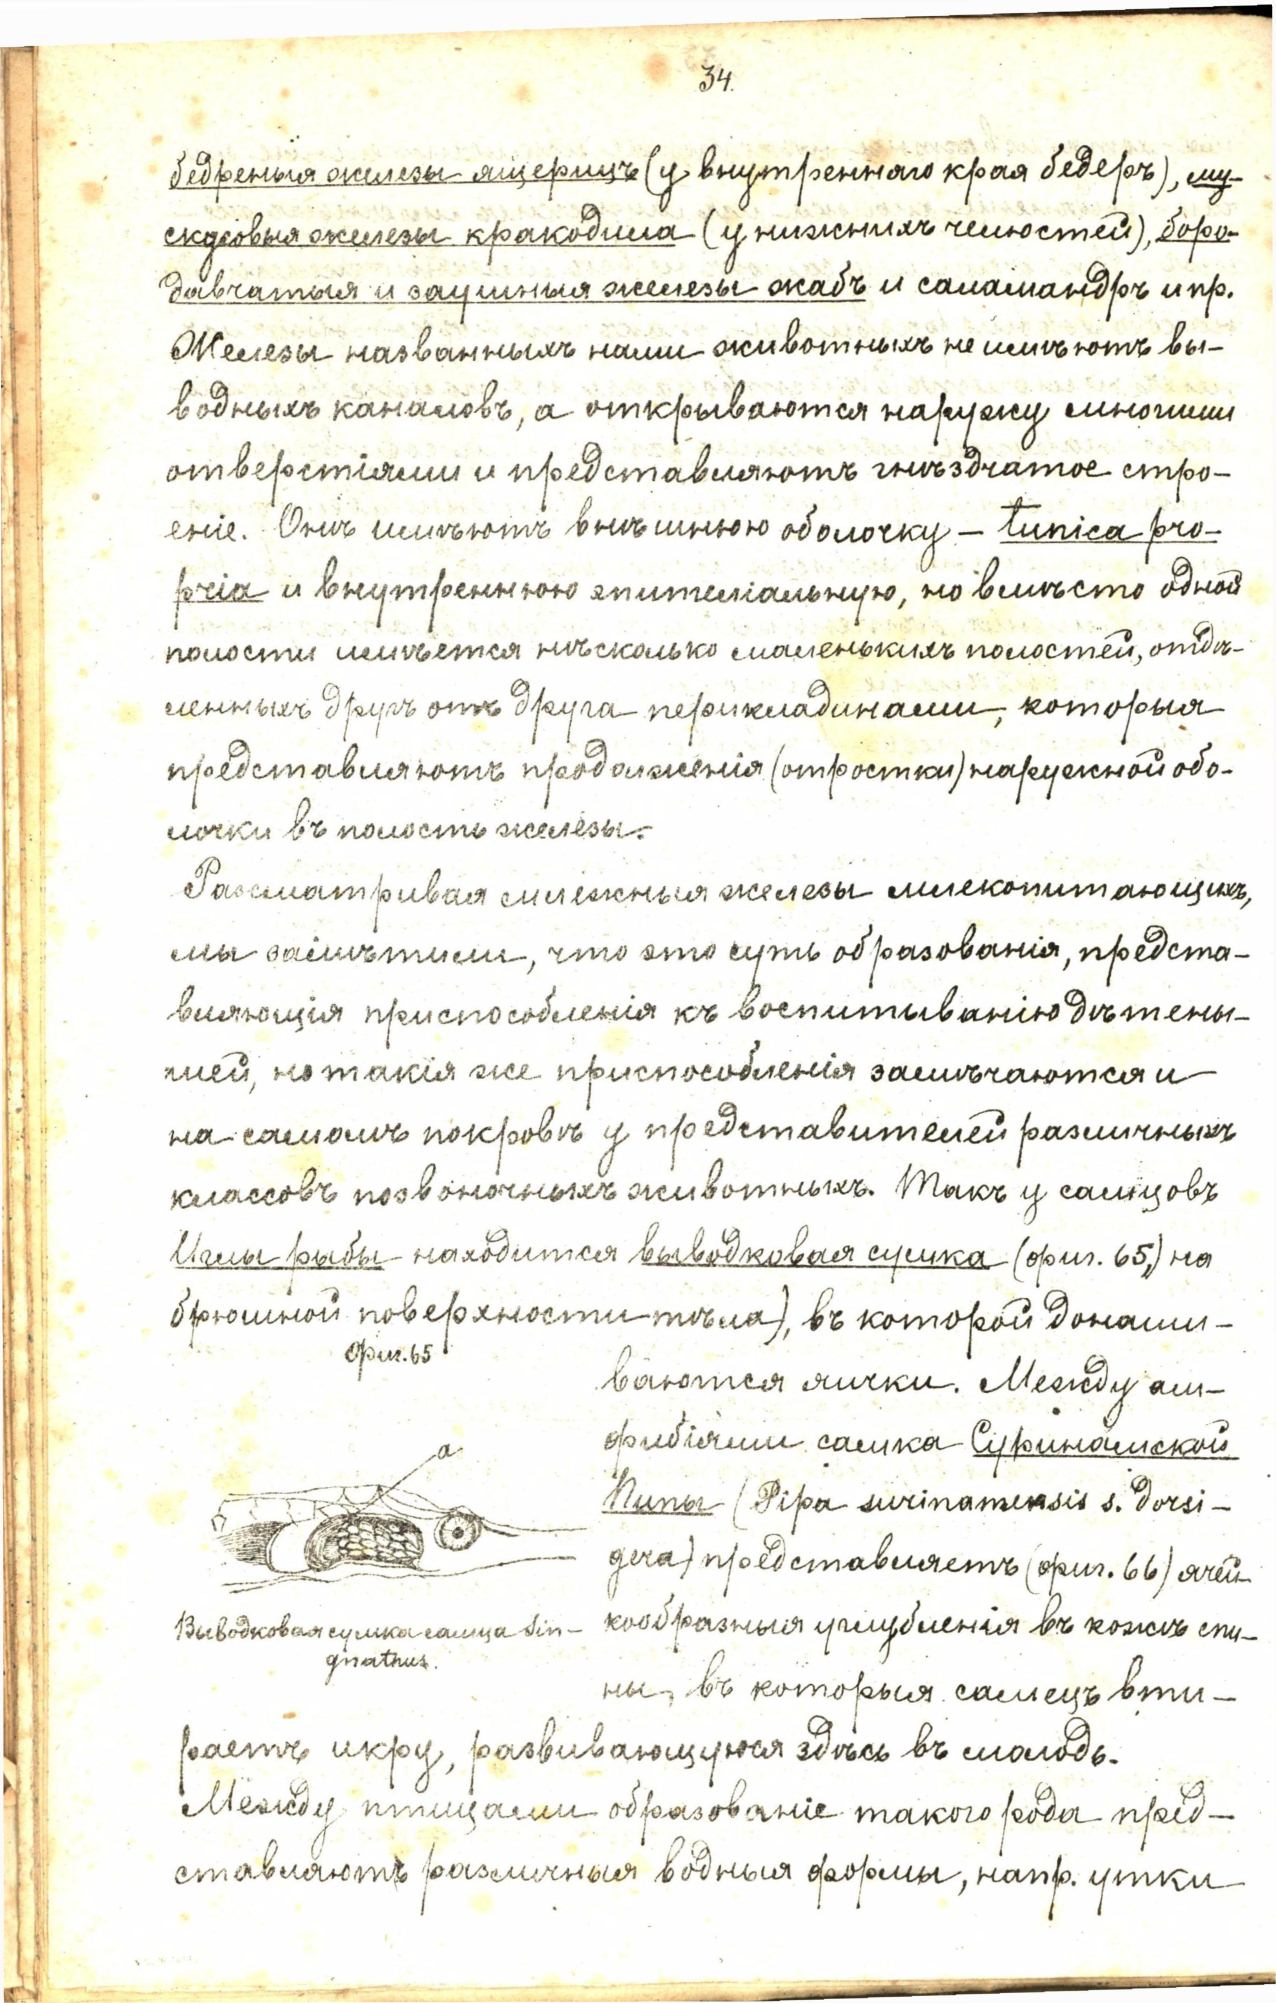 34.
бедренныя железы ящерицъ (у внутренняго края бедеръ), му-
скусовыя железы кракодила (у нижнихъ челюстей), боро-
давчатыя и заушныя железы жабъ и саламандръ и пр.
Железы названныхъ нами животныхъ не имѣютъ вы-
водныхъ каналовъ, а открываются наружу многими
отверстіями и представляютъ гнѣздчатое стро-
еніе. Онѣ имѣютъ внѣшнюю оболочку – tunica pro-
pria и внутреннюю эпителіальную, но вмѣсто одной
полости имѣется нѣсколько маленькихъ полостей, отдѣ-
ленныхъ другъ отъ друга перикладинами, которыя
представляютъ продолженія (отростки) наружной обо-
лочки въ полость железы.
Разсматривая млежныя железы млекопитающихъ,
мы замѣтили, что это суть образованія, предста-
вляющія приспособленія къ воспитыванію дѣтены-
шей, но такія же приспособленія замѣчаются и
на самомъ покровѣ у представителей различныхъ
классовъ позвоночныхъ животныхъ. Такъ у самцовъ
Иглы рыбы находится выводковая сумка (фиг. 65,) на
брюшной поверхности тѣла), въ которой донаши-
фиг. 65
ваются яички. Между ам-
фибіями самка Суринамской
Пипы (Pipa surinamensis s. dorsi-
gera) представляетъ (фиг. 66) ячей-
кообразныя углубленія въ кожѣ спи-
ны, въ которыя самецъ вти-
a
Выводковая сумка самца Sin-
gnathus.
раетъ икру, развивающуюся здѣсь въ молодь.
Между птицами образованіе такого рода пред-
ставляютъ различныя водныя формы, напр. утки